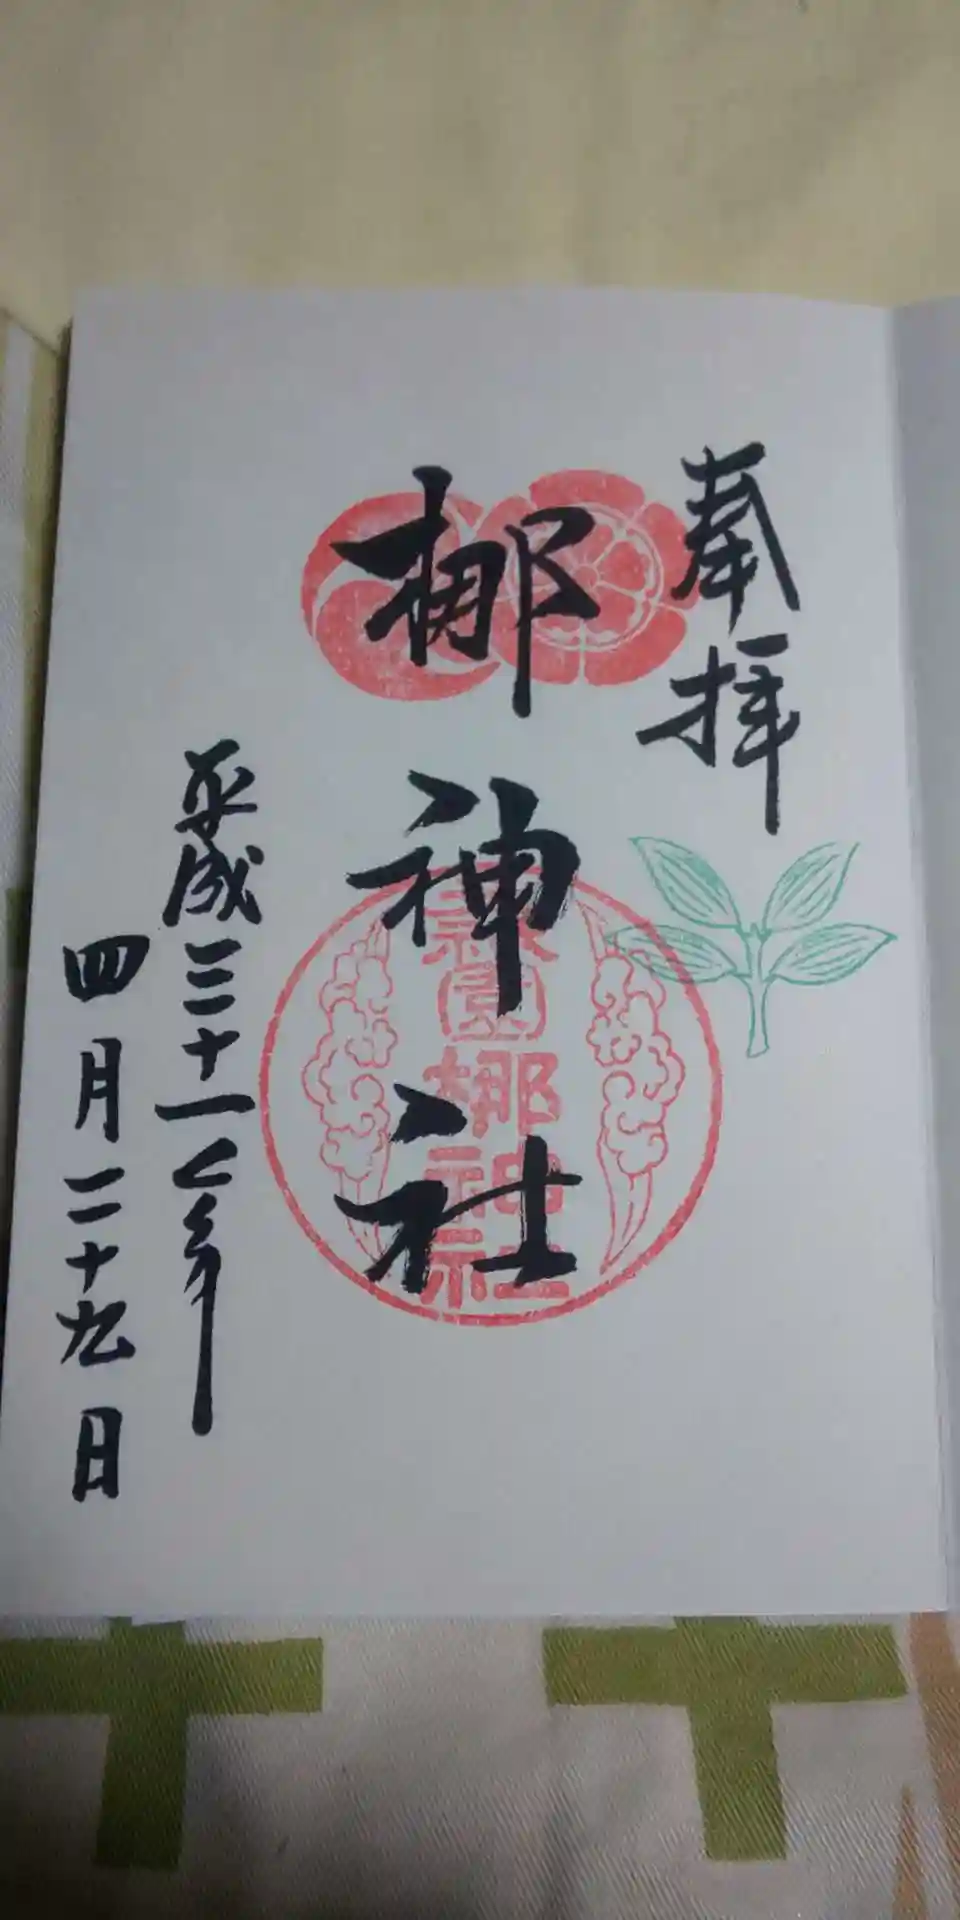 奉拝
梛神社
元祇園梛神社
平成三十一年
四月二十九日